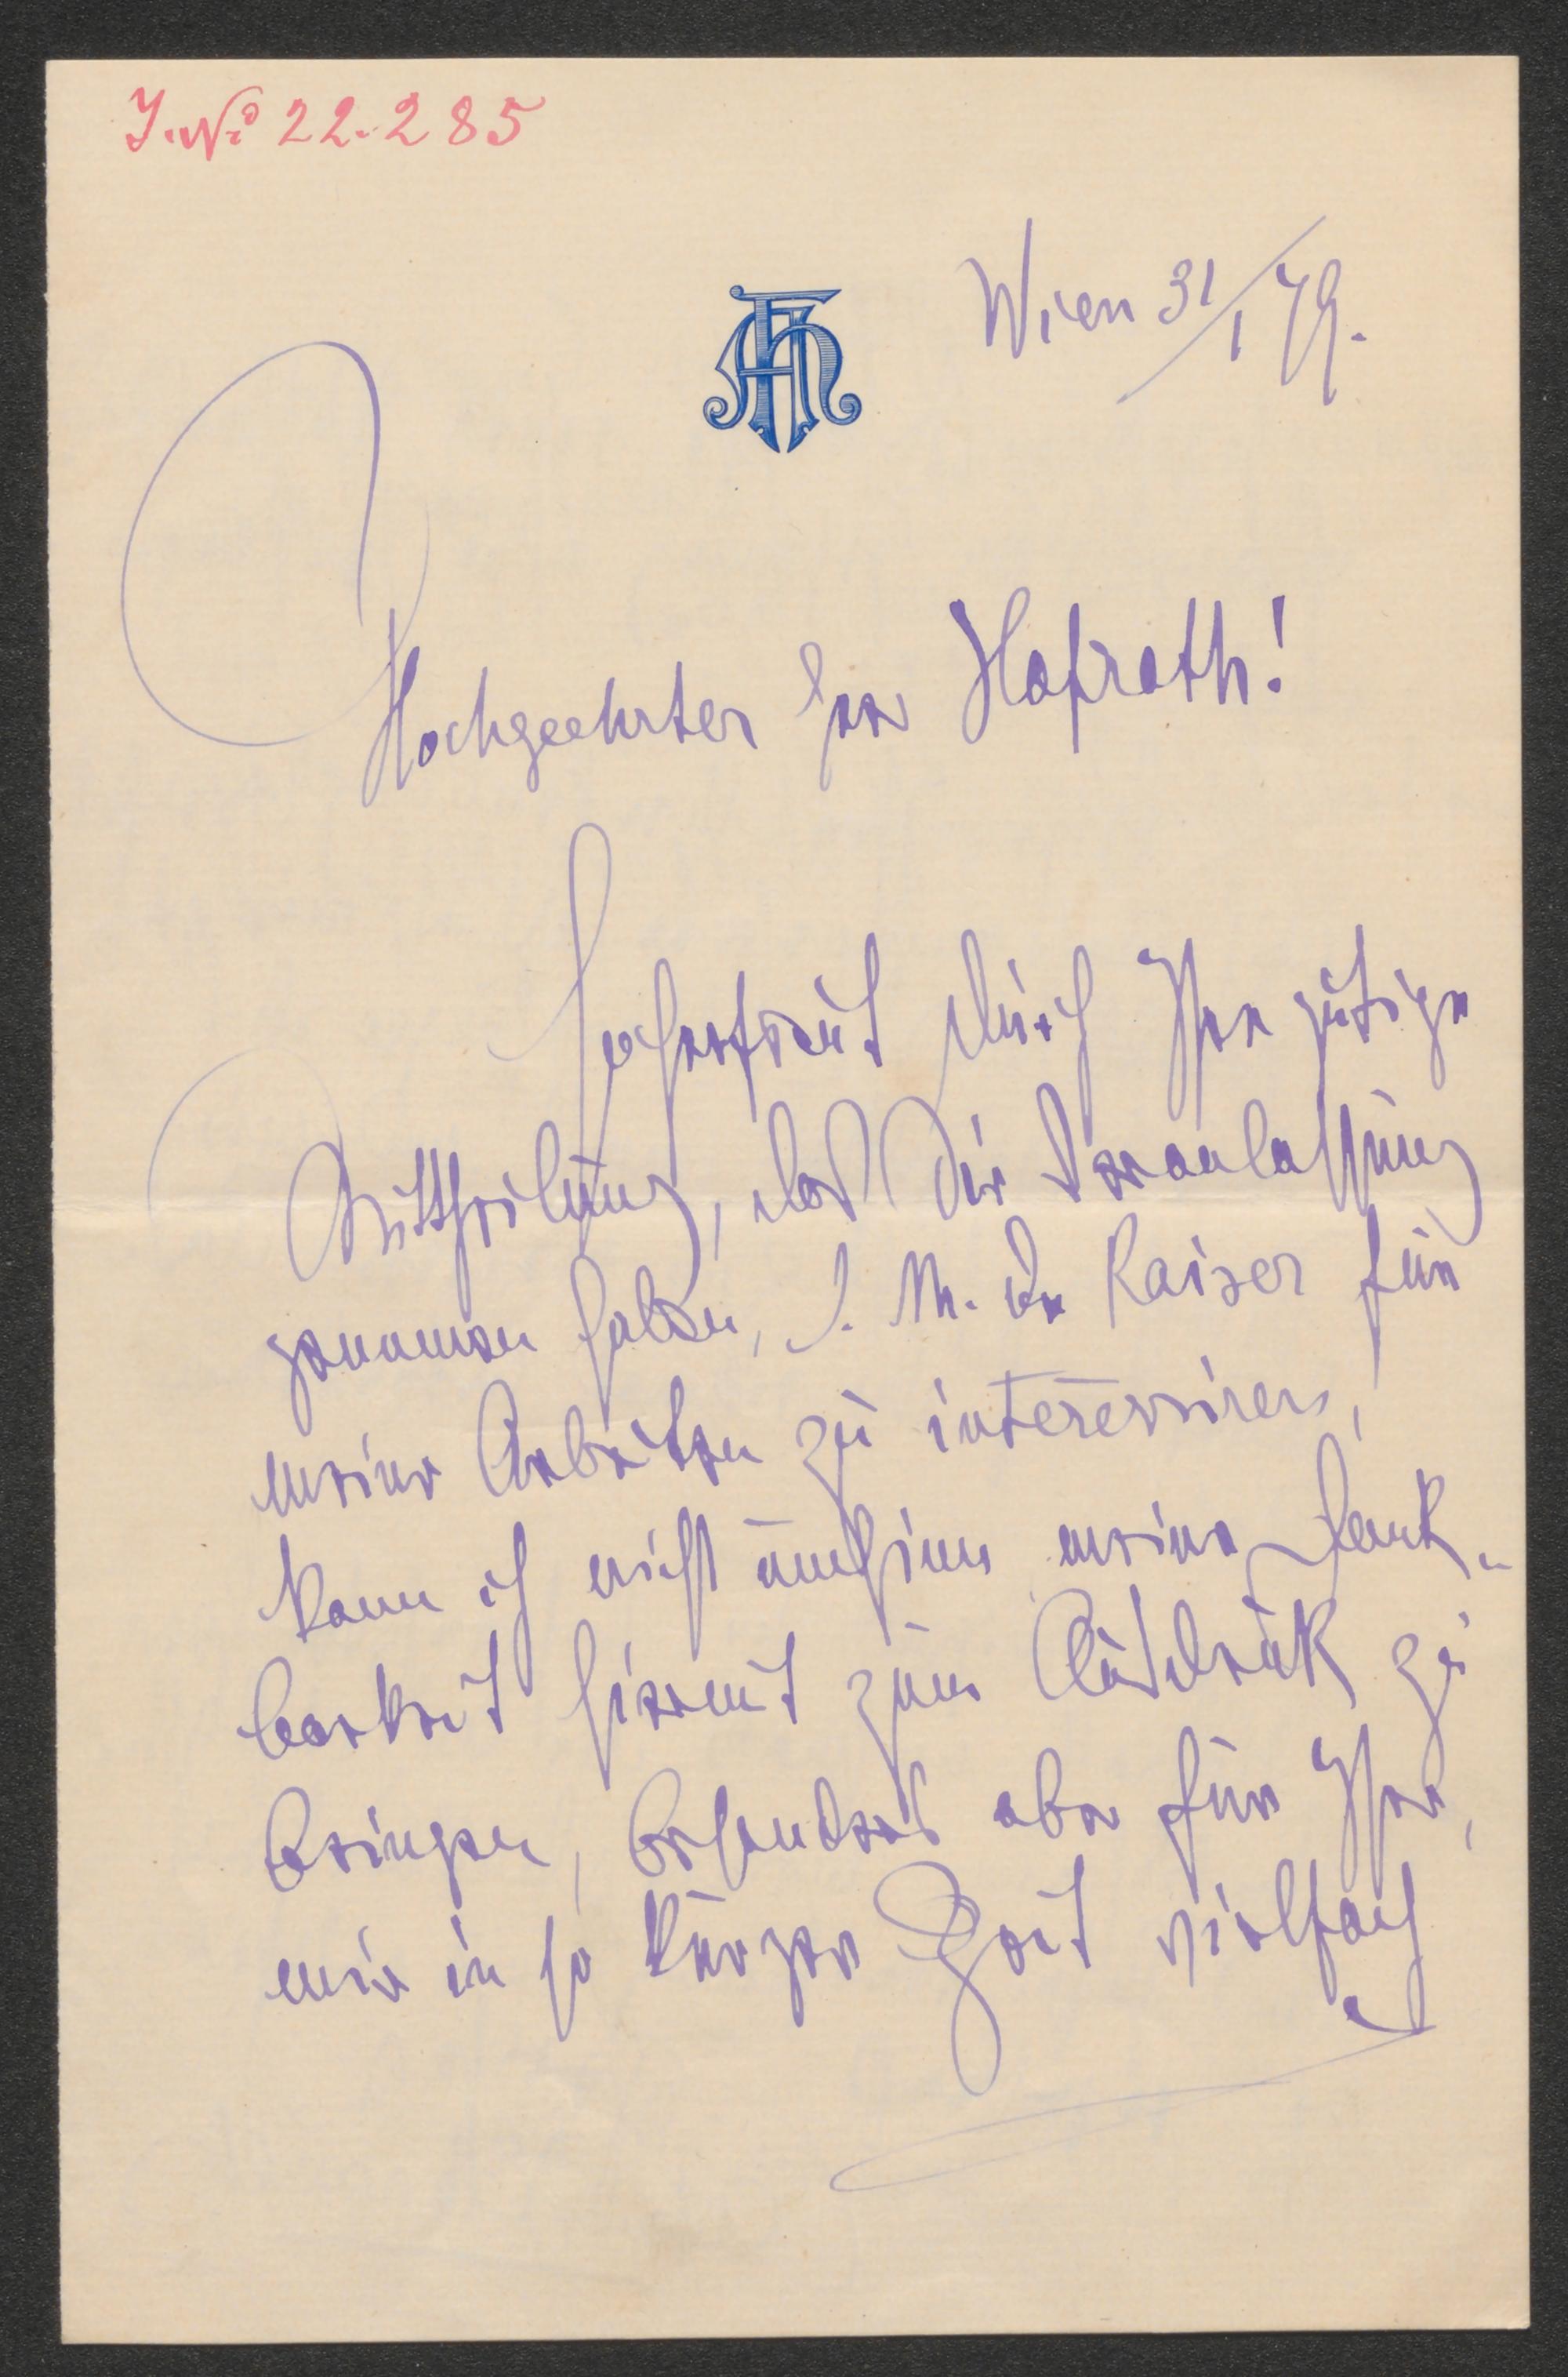 J. No 22.285
Wien 31/1 79.
Hochgeehrter Herr Hofrath!
Hocherfreut durch Ihre gütige
Mittheilung, das Sie Veranlassung
genommen haben, S. M. den Kaiser für
meine Arbeiten zu interessiren,
kann ich nicht umhin meine Dank-
barkeit hiermit zum Ausdruck zu
bringen, besonders aber für Ihre,
mir in so kurzer Zeit vielfach